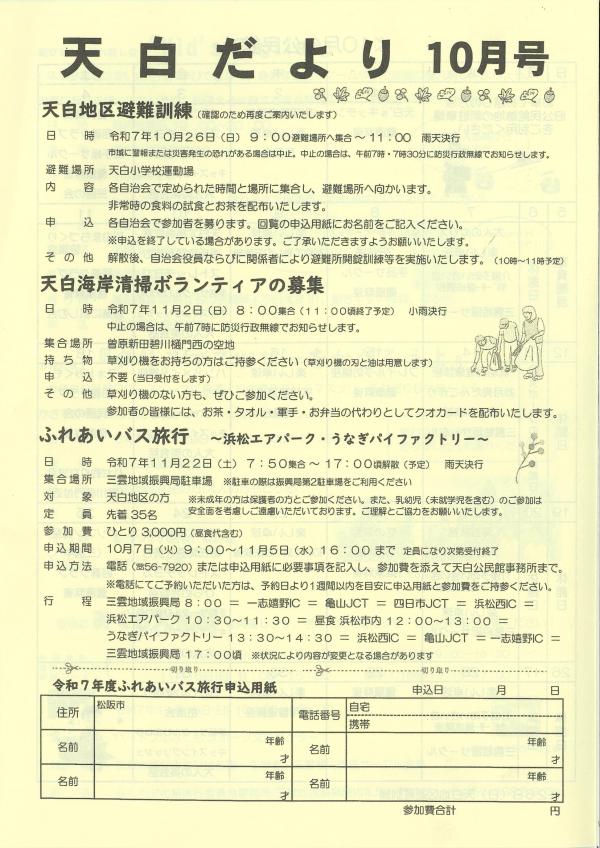 天白だより 10月号
天白地区避難訓練（確認のため再度ご案内いたします）
日　　時　令和7年10月26日（日） 9：00避難場所へ集合～11：00　雨天決行
市域に警報または災害発生の恐れがある場合は中止。中止の場合は、午前7時・7時30分に防災行政無線でお知らせします。
避難場所　天白小学校運動場
内　　容　各自治会で定められた時間と場所に集合し、避難場所へ向かいます。
非常時の食料の試食とお茶を配布いたします。
申　　込　各自治会で参加者を募ります。回覧の申込用紙にお名前をご記入ください。
※申込を終了している場合があります。ご了承くださいますようお願いいたします。
そ の 他　解散後、自治会役員ならびに関係者により避難所開錠訓練等を実施いたします。（10時～11時予定）
天白海岸清掃ボランティアの募集
日　　時　令和7年11月2日（日） 8：00集合（11：00頃終了予定）　小雨決行
中止の場合は、午前7時に防災行政無線でお知らせします。
集合場所　曽原新田碧川樋門西の空地
持 ち 物　草刈り機をお持ちの方はご持参ください（草刈り機の刃と油は用意します）
申　　込　不要（当日受付をします）
そ の 他　草刈り機のない方も、ぜひご参加ください。
参加者の皆様には、お茶・タオル・軍手・お弁当の代わりとしてクオカードを配布いたします。
ふれあいバス旅行　～浜松エアパーク・うなぎパイファクトリー～
日　　時　令和7年11月22日（土） 7：50集合～17：00頃解散（予定）　雨天決行
集合場所　三雲地域振興局駐車場　※駐車の際は振興局第2駐車場をご利用ください
対　　象　天白地区の方　※未成年の方は保護者の方とご参加ください。また、乳幼児（未就学児を含む）のご参加は
安全面を考慮しご遠慮いただいております。ご理解とご協力をお願いいたします。
定　　員　先着35名
参 加 費　ひとり3,000円（昼食代含む）
申込期間　10月7日（火）9：00～11月5日（水）16：00まで 定員になり次第受付終了
申込方法　電話（☎56-7920）または申込用紙に必要事項を記入し、参加費を添えて天白公民館事務所まで。
※電話にてご予約いただいた方は、予約日より1週間以内を目安に申込用紙と参加費をご持参ください。
行　　程　三雲地域振興局 8：00 ＝ 一志嬉野IC ＝ 亀山JCT ＝ 四日市JCT ＝ 浜松西IC ＝
浜松エアパーク 10：30～11：30 ＝ 昼食 浜松市内 12：00～13：00 ＝
うなぎパイファクトリー 13：30～14：30 ＝ 浜松西IC ＝ 亀山JCT ＝一志嬉野IC ＝
三雲地域振興局 17：00頃　※状況により内容が変更となる場合があります
切り取り　切り取り
令和7年度ふれあいバス旅行申込用紙　申込日　月　日
住所　松阪市　電話番号　自宅
携帯
名前　年齢　才　名前　年齢　才
名前　年齢　才　名前　年齢　才
参加費合計　円